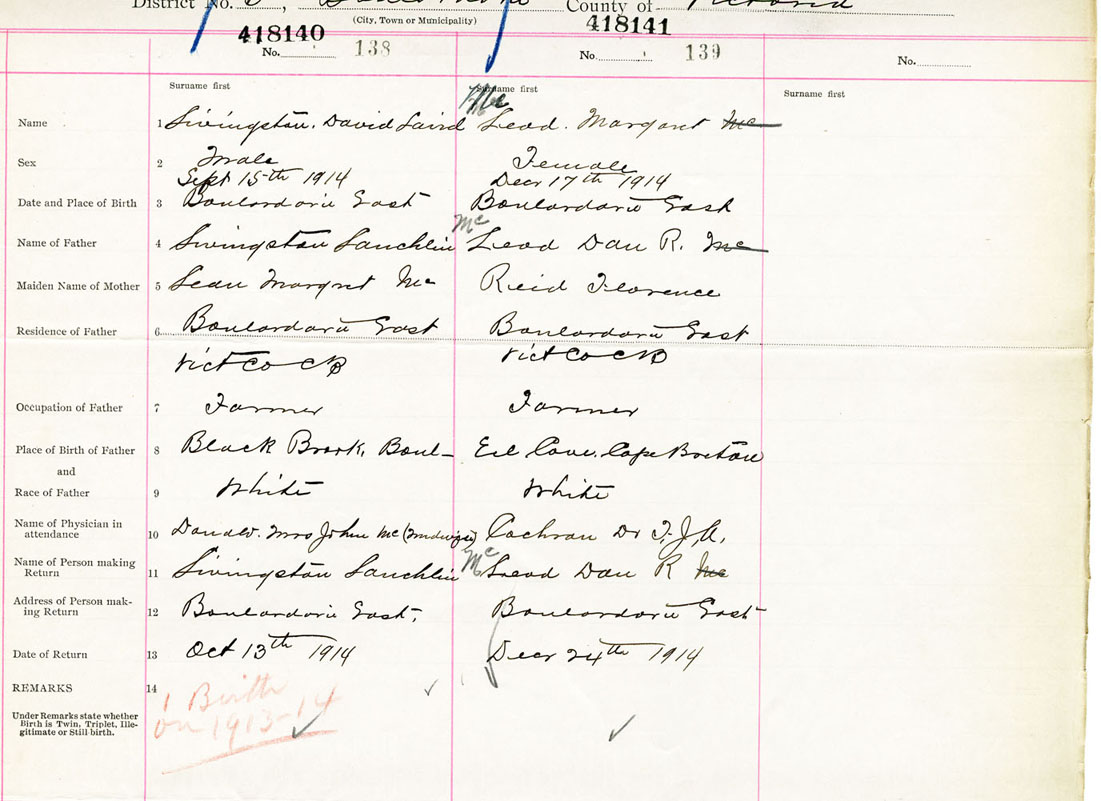 District No.
County of
(City, Town or Municipality)
418140 418141
No. 138 No. 139 No.
Surname first Surname first Surname first
Mc
Name 1 Livingston. David Laird Leod. Margaret Mc
Sex 2 Male Female
Sept 15th 1914 Decr 17th 1914
Date and Place of Birth 3 Boulardarie East Boulardarie East
Mc
Name of Father 4 Livingston Lauchlin Leod Dan R. Mc
Maiden Name of Mother 5 Lean Margret Mc Reid Florence
Residence of Father 6 Boulardarie East Boulardarie East
Vict Co CB Vict Co CB
Occupation of Father 7 Farmer Farmer
Place of Birth of Father 8 Black Brook, Boul- Eel Cove. Cape Breton
and
Race of Father 9 White White
Name of Physician in
attendance 10 Donald. Mrs John Mc (Midwife) Cochran Dr
Name of Person making
Return 11 Livingston Lauchlin Mc Leod Dan R Mc
Address of Person mak-
ing Return 12 Boulardarie East, Boulardarie East
Date of Return 13 Oct 13th 1914 Decr 24th 1914
REMARKS 14
1 Birth
on 1913-14
Under Remarks state whether
Birth is Twin, Triplet, Ille-
gitimate or Still birth.